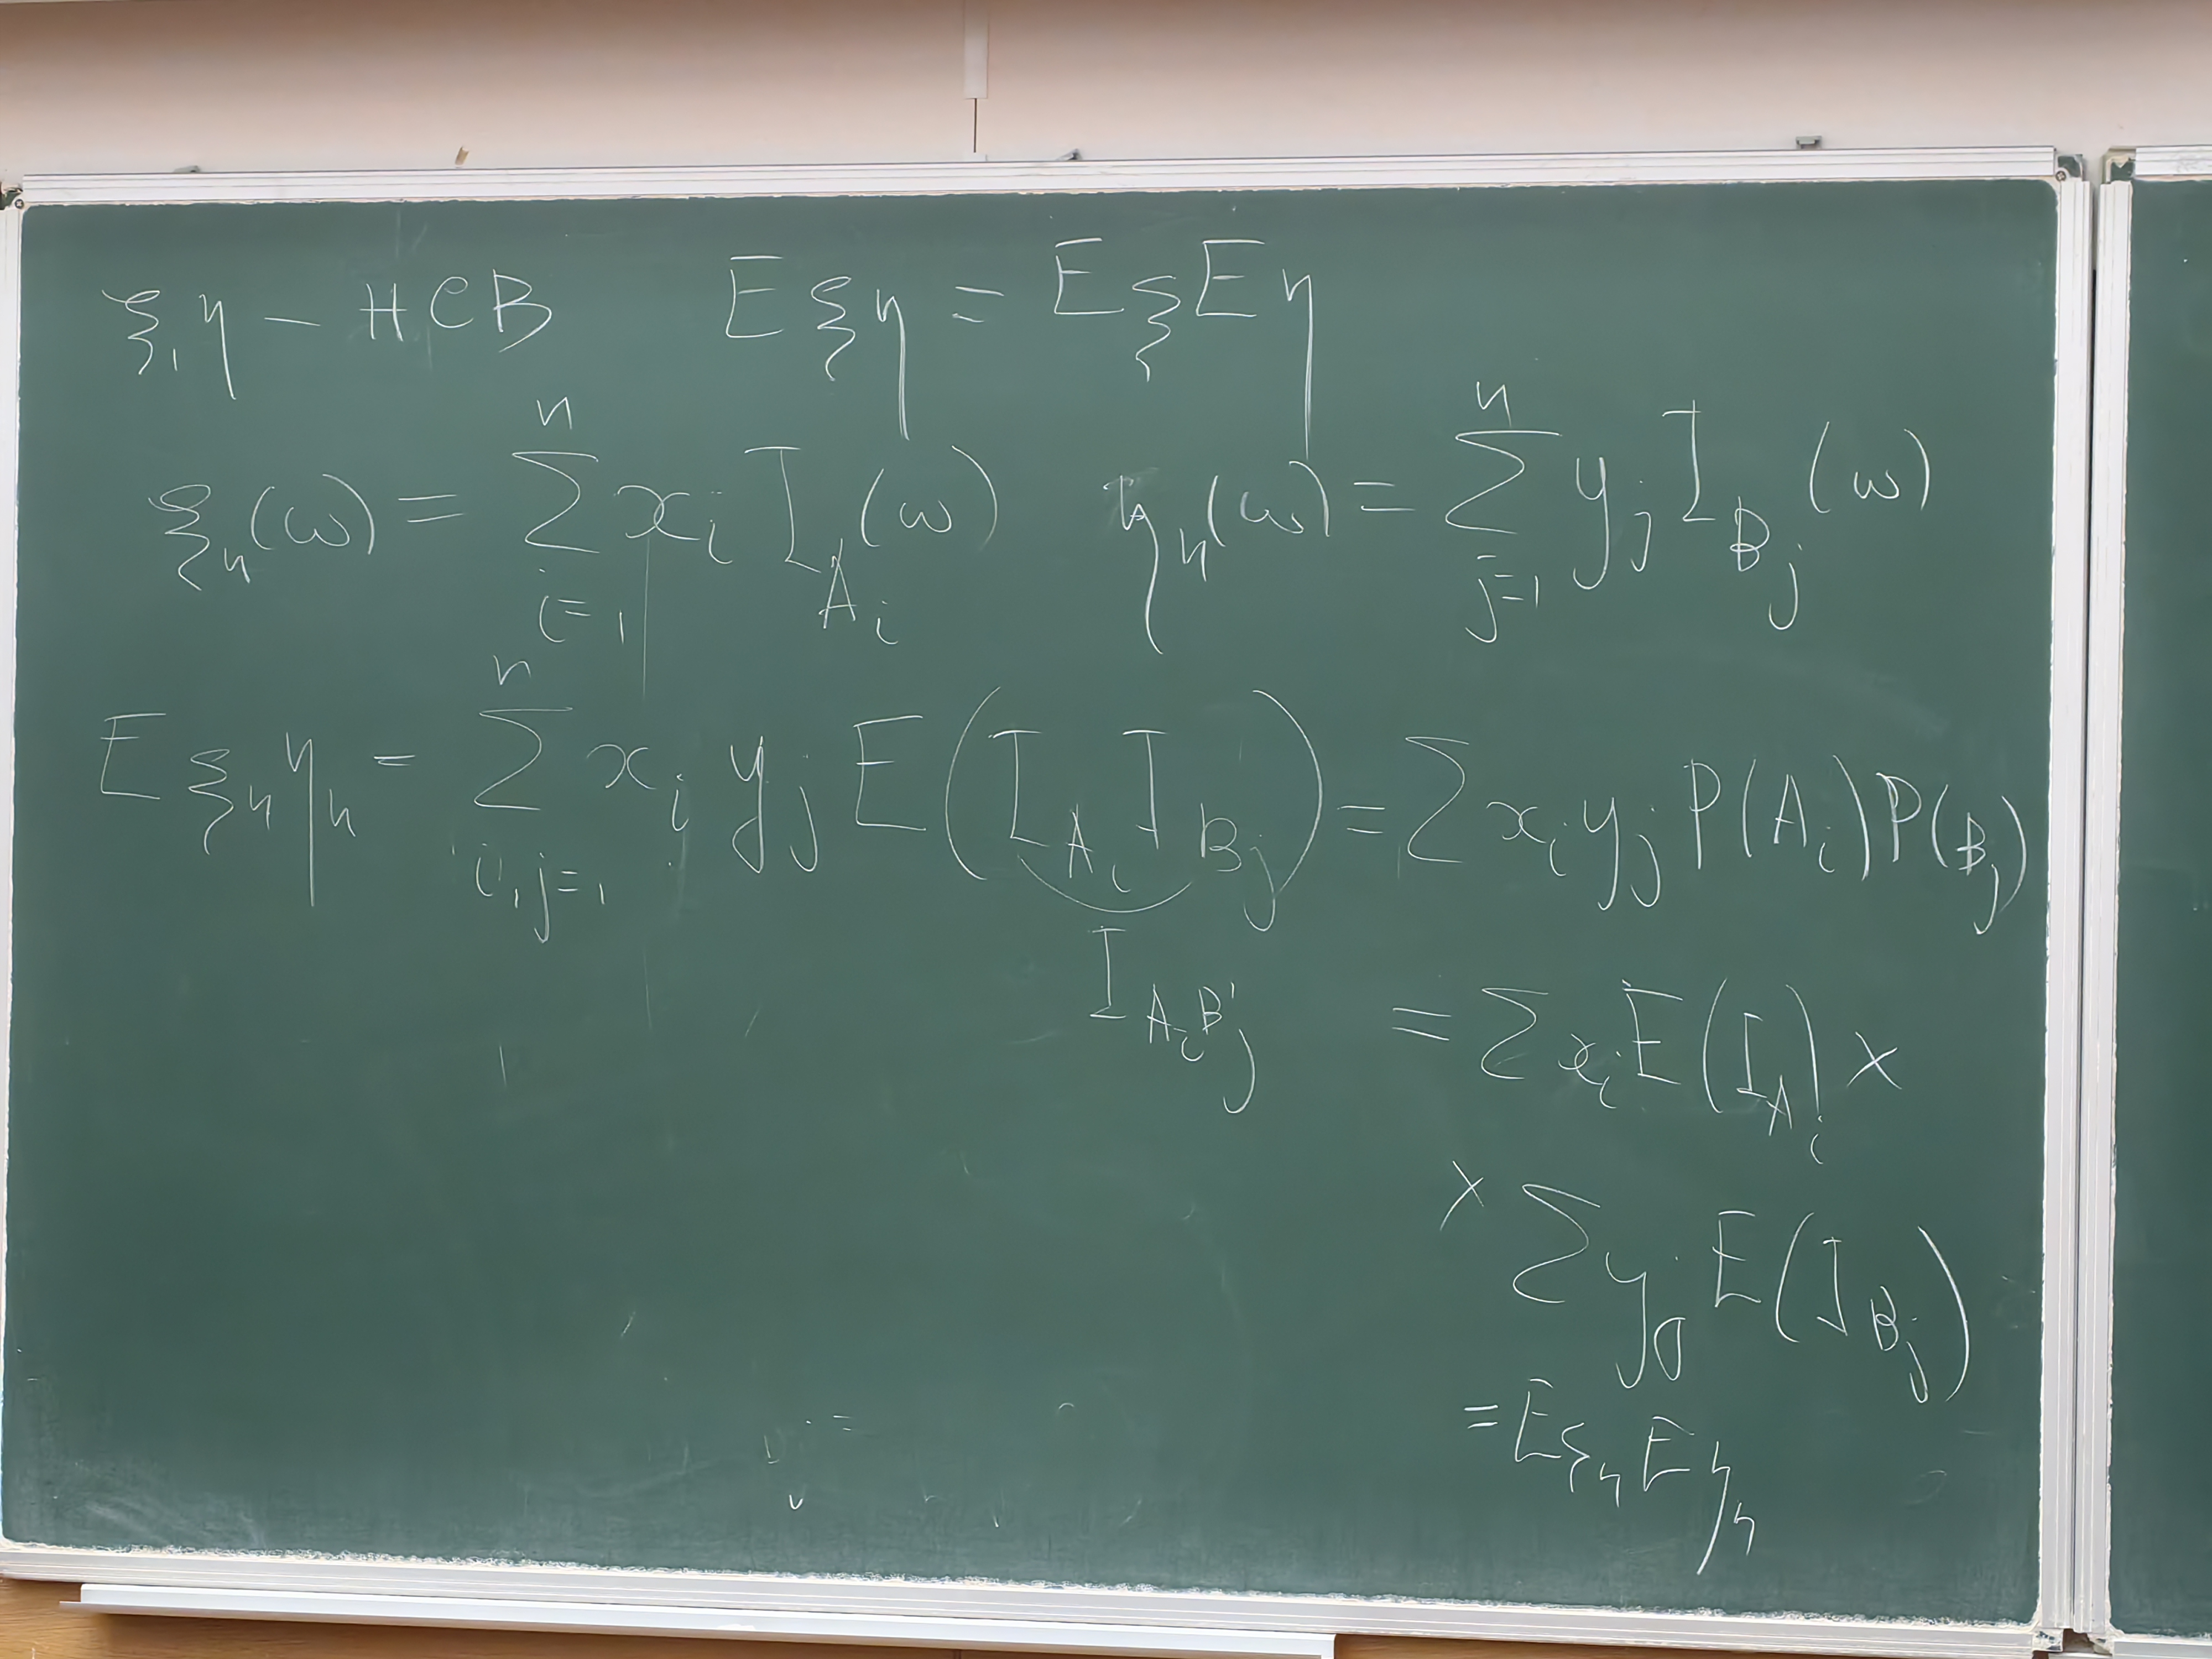 ξ, η – НСВ Eξη = EξEη
ξₙ(ω) = ∑ⁿᵢ₌₁ xᵢ I_{Aᵢ}(ω) ηₙ(ω) = ∑ⁿⱼ₌₁ yⱼ I_{Bⱼ}(ω)
Eξₙηₙ = ∑ⁿᵢ,ⱼ₌₁ xᵢ yⱼ E(I_{Aᵢ} I_{Bⱼ}) = ∑ xᵢ yⱼ P(Aᵢ) P(Bⱼ)
I_{AᵢBⱼ} = ∑ xᵢ E(I_{Aᵢ}) ×
× ∑ yⱼ E(I_{Bⱼ})
= Eξₙ Eηₙ